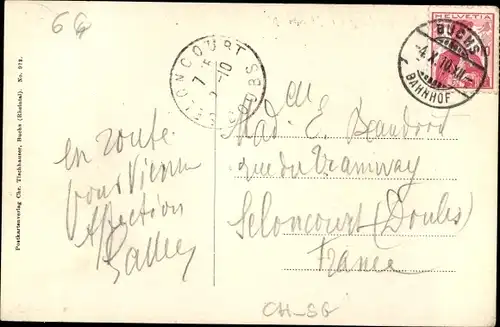 6
HELVETIA
BUCHS
-4.X.10.XII-
BAHNHOF
SELONCOURT
DOUBS
7
-10
Postkartenverlag Chr. Tischhauser, Buchs (Rheintal). No. 912.
en route
pour Vienne
Affection
Mad. E. Beaudoir
rue du Tramway
Seloncourt (Doubs)
France
CH-SG